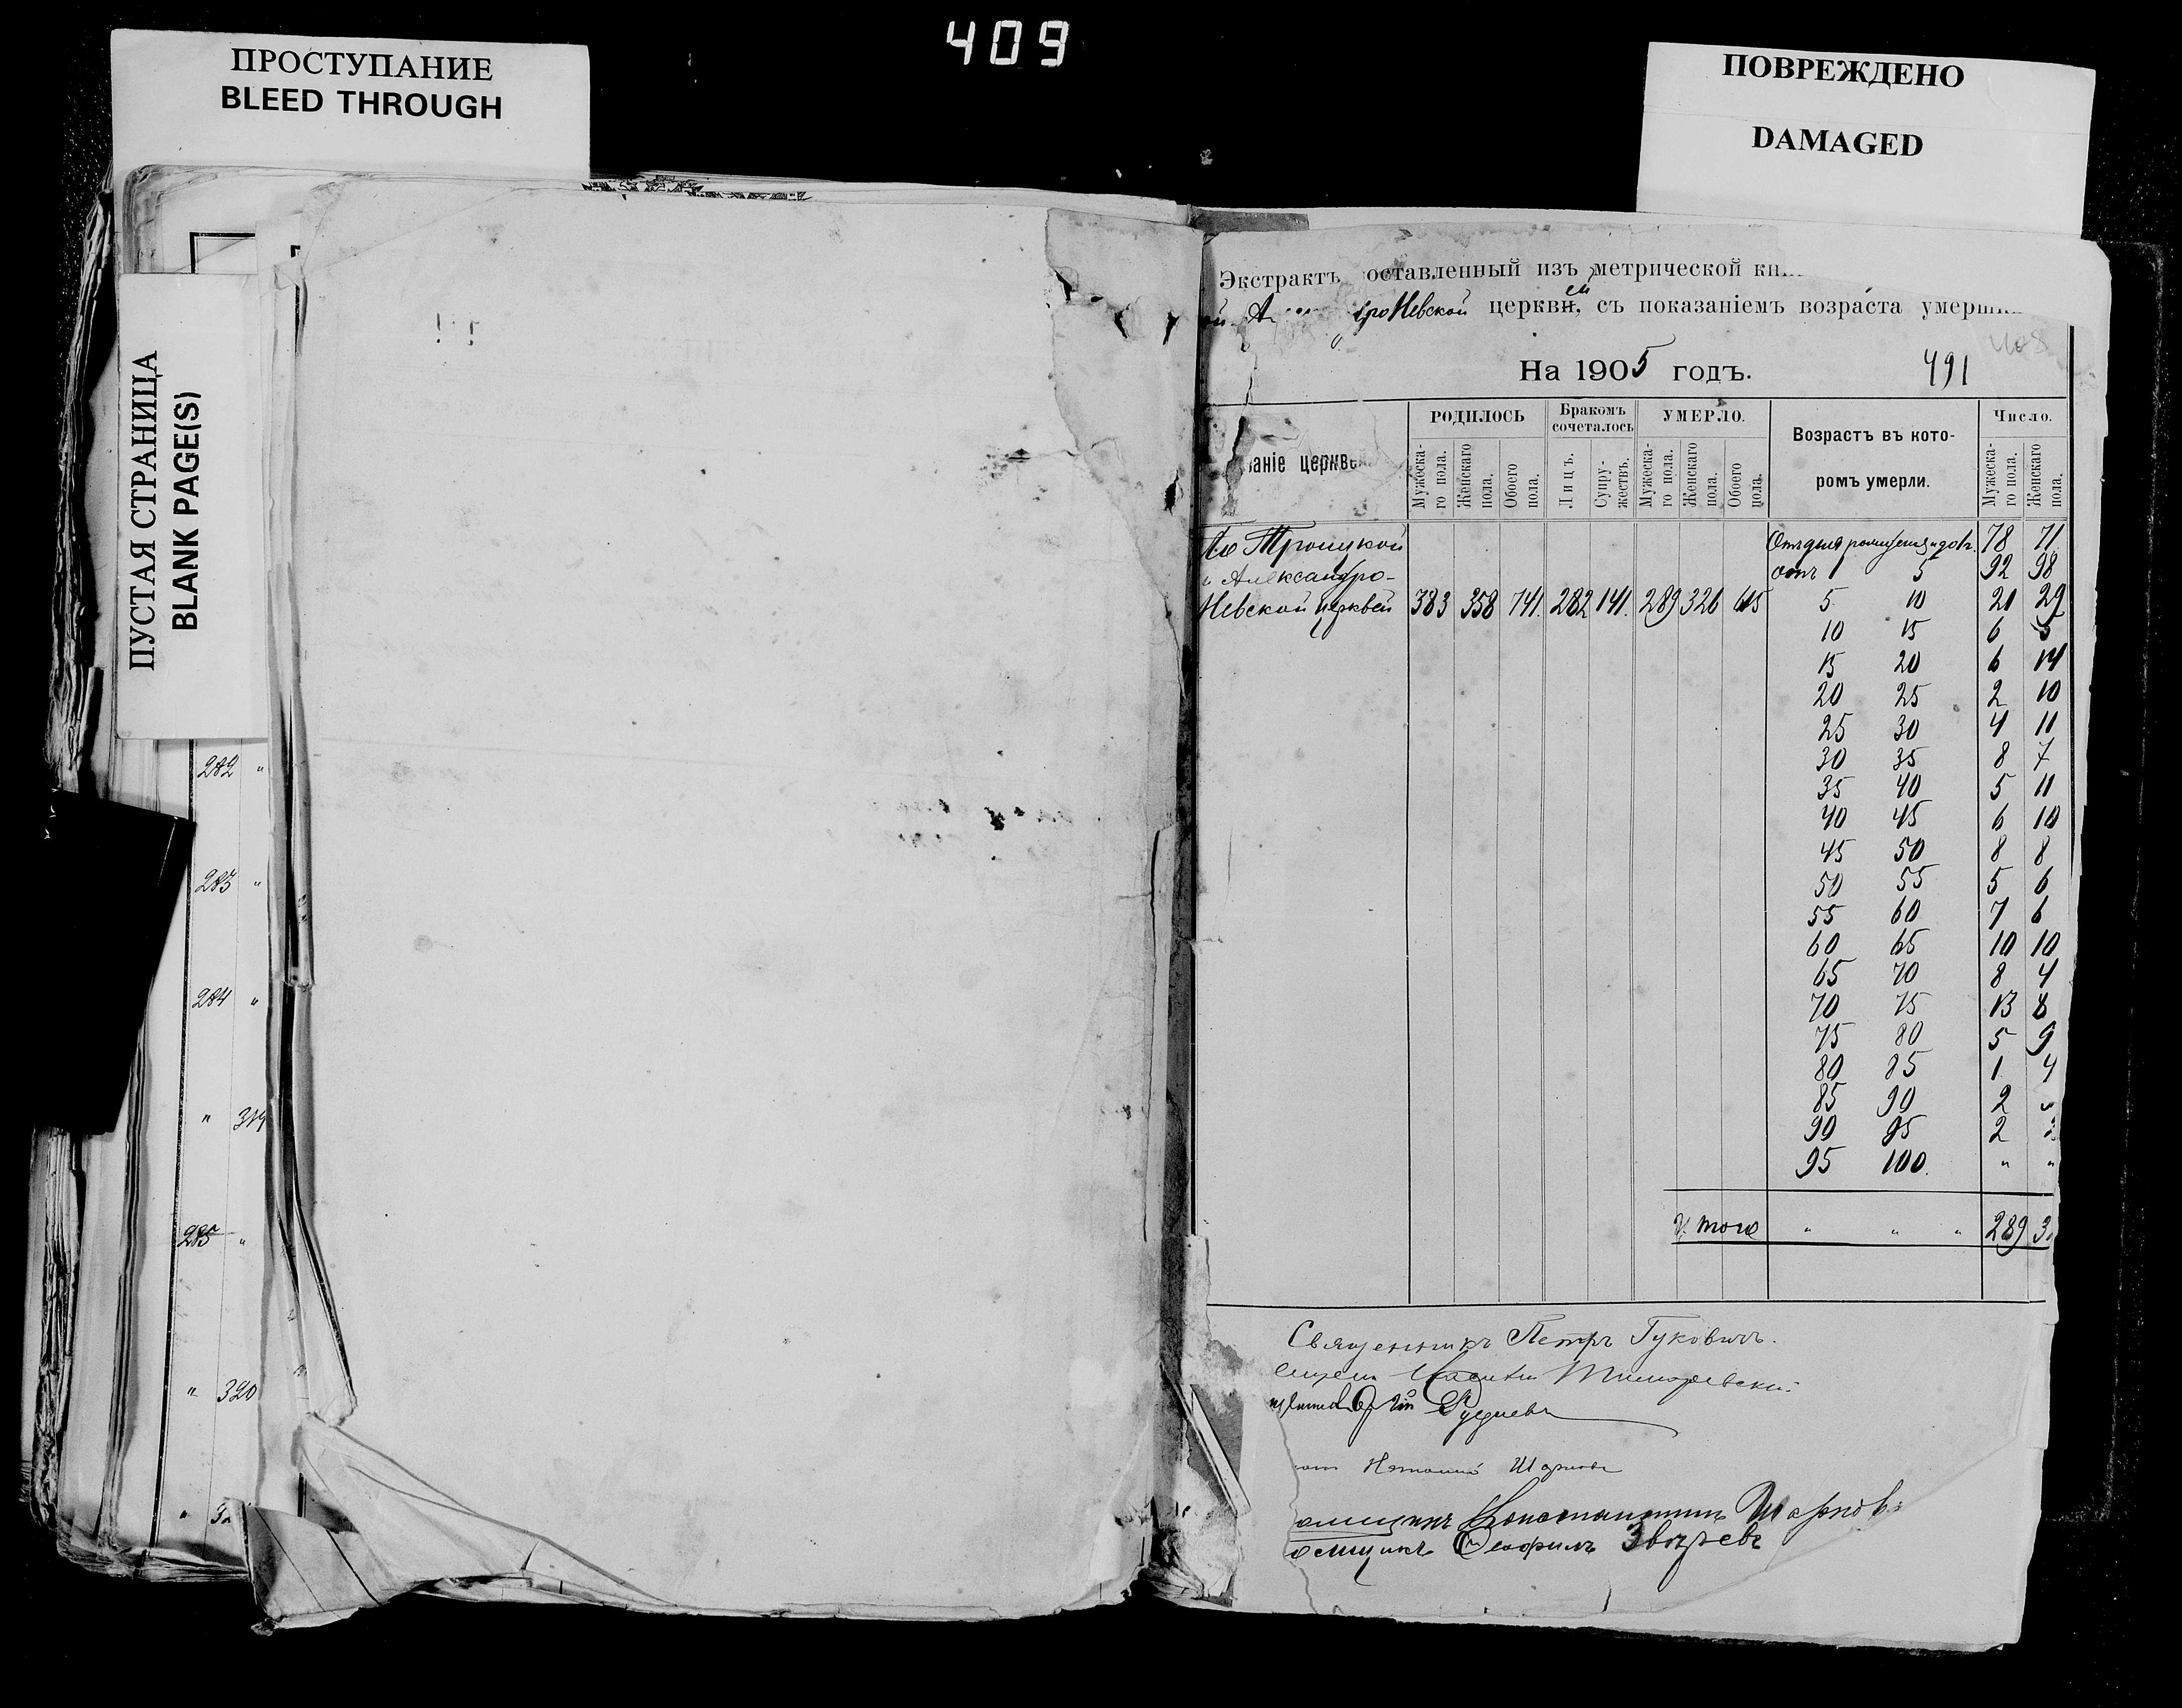 409
ПРОСТУПАНИЕ
BLEED THROUGH
ПОВРЕЖДЕНО
DAMAGED
ПУСТАЯ СТРАНИЦА
BLANK PAGE(S)
282 "
283 "
284 "
" 319
" 320
Экстрактъ оставленный изъ метрической
Невской церквей, съ показаніемъ возраста
408
На 1905 годъ.
491
церкве
РОДИЛОСЬ
Бракомъ сочеталось
УМЕРЛО.
Возрастъ въ кото-
ромъ умерли.
Число.
Мужеска-го пола.
Женскаго пола.
Обоего пола.
Лицъ.
Супру-жествъ.
Мужеска-го пола.
Женскаго пола.
Обоего пола.
Мужеска-го пола.
Женскаго пола.
По Троицкой
и Александро-
Невской церквей 383 358 741. 282 141. 289 326 615
Отъ дня рожденія до 1г. 78 71
отъ 1 5 92 98
5 10 21 29
10 15 6 5
15 20 6 14
20 25 2 10
25 30 4 11
30 35 8 7
35 40 5 11
40 45 6 10
45 50 8 8
50 55 5 6
55 60 7 6
60 65 10 10
65 70 8 4
70 75 13 8
75 80 5 9
80 85 1 4
85 90 2
90 95 2
95 100. " "
Итого " " " 289
Священникъ Петръ Гуковичъ.
Константинъ Шарковъ
Ѳеофилъ Звѣревъ